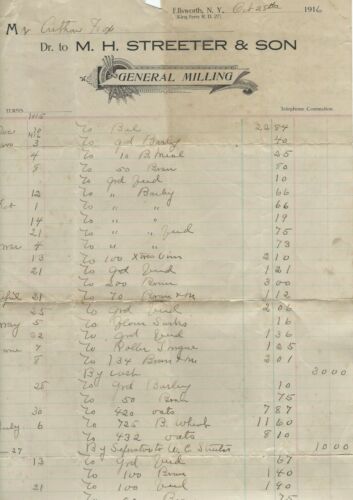 Ellsworth, N. Y., Oct 28th 1916
(King Ferry R. D. 27)
Mr Arthur Fox
Dr. to M. H. STREETER & SON
GENERAL MILLING
TERMS Telephone Connection
1915
Dec 30 To Bal 22 84
3 To grd Barley 40
4 To 10 B. Meal 25
8 To 50 Bran 80
To grd feed 10
12 To " Barley 66
1 To " " 66
14 To " " 19
21 To " " feed 75
Mar 4 To " " 73
13 To 100 2 10
21 To grd feed 1 21
To 200 Bran 3 00
April 21 To 70 Bran 1 12
25 To grd feed 2 06
May 5 To flour Sacks 16
22 To grd feed 1 36
7 To Roller Tongue 1 25
8 To 134 Bran 2 01
By cash 30 00
25 To grd Barley 10
To 50 Bran 75
30 To 420 oats 7 87
July 6 To 725 B. Wheat 11 60
To 432 oats 8 10
27 By W. C. Streeter 10 00
12 To grd feed 67
To 100 Bran 1 40
21 To 100 Bran 1 40
75